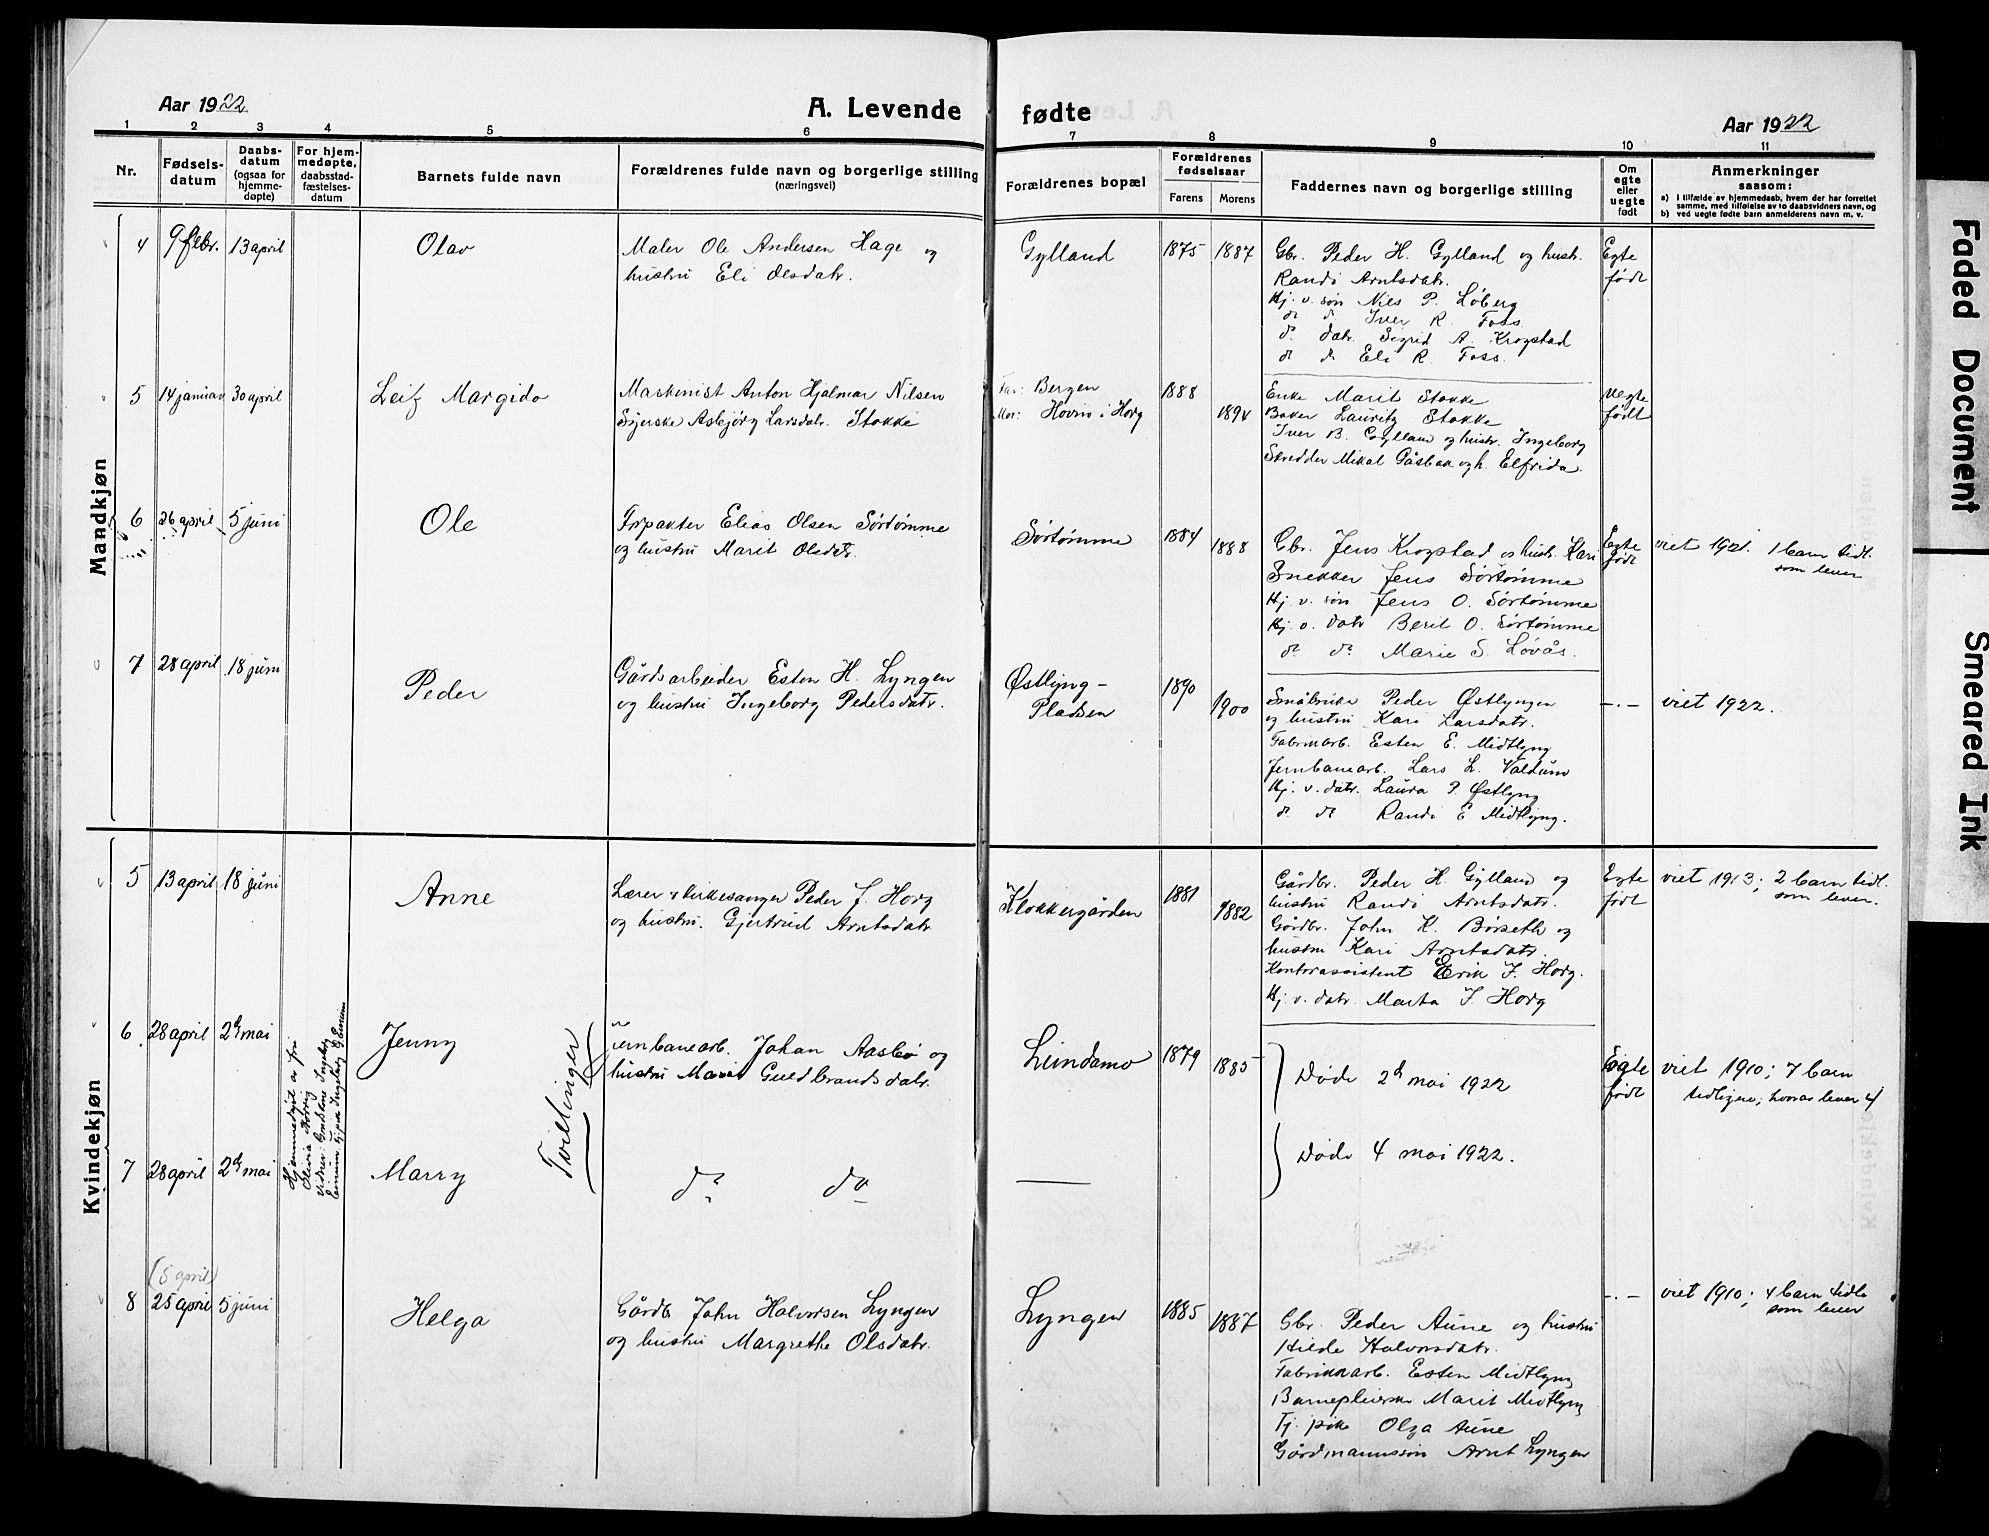 Aar 1922
A. Levende
fødte
Aar 1922
1 2 3 4 5 6 7 8 9 10 11
Nr.
Fødsels-
datum
Daabs-
datum
(ogsaa for
hjemme-
døpte)
For hjem-
medøpte,
daabsstad-
fæstelses-
datum
Barnets fulde navn
Forældrenes fulde navn og borgerlige stilling
(næringsvei)
Forældrenes bopæl
Forældrenes
fødselsaar
Farens Morens
Faddernes navn og borgerlige stilling
Om
egte
eller
uegte
født
Anmerkninger
saasom:
a) I tilfælde av hjemmedaab, hvem der har forrettet
samme, med tilføielse av to daabsvidners navn, og
b) ved uegte fødte barn anmelderens navn m. v.
Mandkjøn
4 9 febr. 13 april Olav
Maler Ole Andersen Hage og
hustru Eli Olsdatr.
Gylland 1875 1887
Gbr. Peder H. Gylland og hustr.
Randi Arntsdatr.
Hj. v. søn Nils P. Løberg
d⁰ d⁰ Iver R. Foss
d⁰ datr. Sigrid A. Krogstad
d⁰ d⁰ Eli R. Foss.
Egte
født
5 14 januar 30 april Leif Margido
Maskinist Anton Hjalmar Nilsen
Syerske Asbjørg Larsdatr. Stokke
Far: Bergen
Mor: Hovin i Horg
1888 1894
Enke Marit Stokke
Baker Lauritz Stokke
Iver B. Gylland og hustr. Ingeborg
Skredder Mikal Gåsbak og h. Elfrida.
Uegte
født
6 26 april 5 juni Ole
Forpakter Elias Olsen Sørtømme
og hustru Marit Olsdatr.
Sørtømme 1884 1888
Gbr. Jens Krogstad og hustr. Kari
Snekker Jens Sørtømme
Hj. v. søn Jens O. Sørtømme
Hj. v. datr Berit O. Sørtømme
d⁰ d⁰ Marie S. Løvås.
Egte
født
viet 1921. 1 barn tidl.
som lever
7 28 april 18 juni Peder
Gårdsarbeider Esten H. Lyngen
og hustru Ingeborg Pedersdatr.
Østlyng-
Pladsen
1890 1900
Småbruker Peder Østlyngen
og hustru Kari Larsdatr.
Fabrikarb. Esten E. Midtlyng
Jernbanearb. Lars L. Valdum
Hj. v. datr. Laura P. Østlyng
d⁰ d⁰ Randi E. Midtlyng.
-.-
viet 1922.
Kvindekjøn
5 13 april 18 juni Anne
Lærer & kirkesanger Peder J. Horg
og hustru. Gjertrud Arntsdatr
Klokkergården 1881 1882
Gårdbr. Peder H. Gylland og
hustru Randi Arntsdatr.
Gårdbr. John K. Børseth og
hustru Kari Arntsdatr.
Kontorassistent Erik J. Horg.
Hj. v. datr. Marta J. Horg
Egte
født
viet 1913; 2 barn tidl.
som lever.
6 28 april 2d mai
Hjemmedøpt av frú
Jenny
Tvillinger
Jernbanearb. Johan Aasbø og
hustru Marit Guldbrandsdatr.
Lundamo 1879 1885
Døde 2d mai 1922
Egte
født
viet 1910; 7 barn
tidligere; hvorav lever 4
7 28 april 2d mai Marry
d⁰ d⁰
Døde 4 mai 1922.
(5 april)
8 25 april 5 juni Helga
Gårdbr John Halvorsen Lyngen
og hustru Margrethe Olsdatr.
Lyngen 1885 1887
Gbr. Peder Aune og hustru
Hilde Halvorsdatr.
Fabrikkarb. Esten Midtlyng
Barnepleierske Marit Midtlyng
Tj. pike Olga Aune
Gårdmannssøn Arnt Lyngen
-.-
viet 1910; 4 barn tidl.
som lever
Faded Document
Smeared Ink